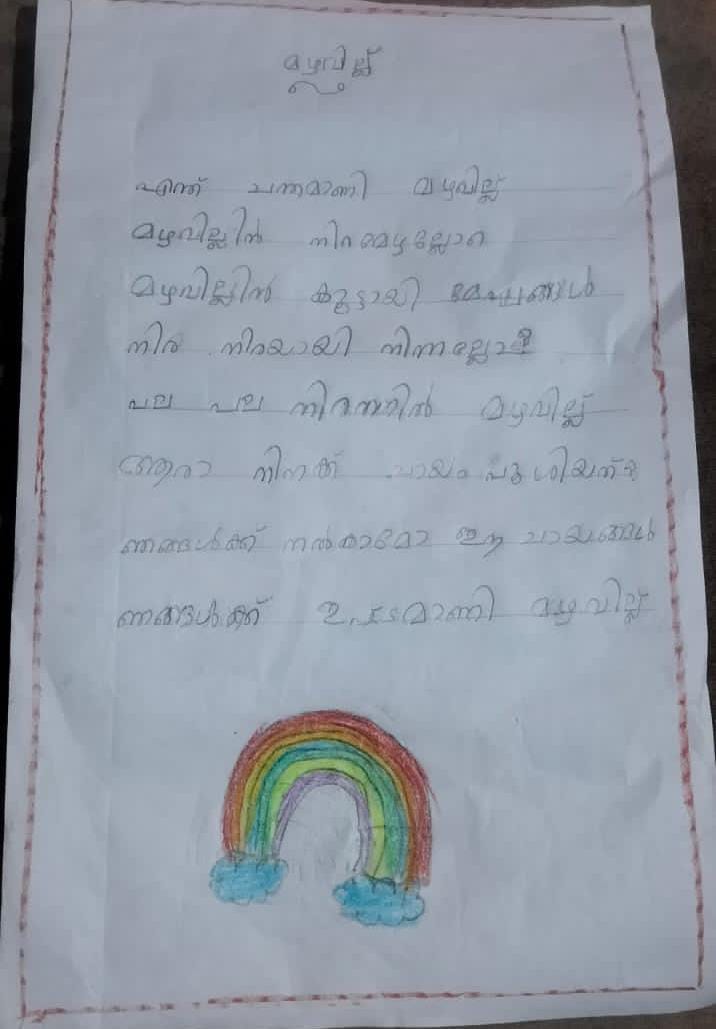 മഴവില്ല്
എന്ത് ചന്തമാണി മഴവില്ല്
മഴവില്ലിൻ നിറമേഴല്ലോ
മഴവില്ലിൻ കൂട്ടായി മേഘങ്ങൾ
നിര നിരയായി നിന്നല്ലോ
പല പല നിറത്തിൽ മഴവില്ല്
ആരാ നിനക്ക് ചായം പൂശിയത്
ഞങ്ങൾക്ക് നൽകാമോ ഈ ചായങ്ങൾ
ഞങ്ങൾക്ക് ഇഷ്ടമാണി മഴവില്ല്